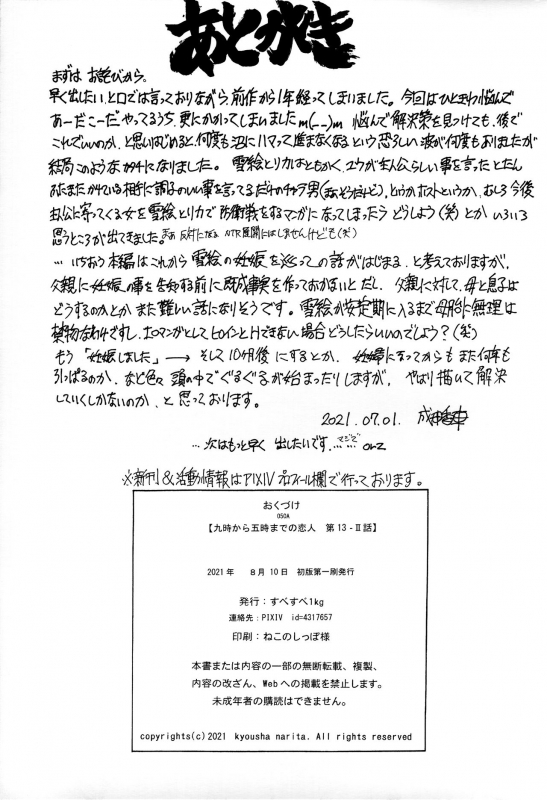 あとがき
まずは お詫びから。
早く出したい、と口では言っておりながら前作から1年経ってしまいました。今回はひときわ悩んで
あーだこーだ やってるうち、更にかかってしまいましたm(_ _)m 悩んで解決策を見つけても、後で
これでいいのか、と思いはじめると、何度も沼にハマって進まなくなるという恐ろしい波が何度もありましたが
結局このようなカタチになりました。雪絵とリカはともかく、ユウが主人公らしい事を言ったとたん
ふたまたかけている相手に調子のいい事を言ってるだけのチャラ男(まぁそうだけど)、というかホストというか、むしろ今後
主人公に寄ってくる女を雪絵とリカで防衛策をするマンガになってしまったらどうしよう(笑)とか いろいろ
思うところが出てきました。まぁ 反対になる NTR展開にはしませんけども(笑)
…いちおう本編はこれから雪絵の妊娠を巡っての話がはじまる、と考えておりますが、
父親に妊娠の事を告知する前に既成事実を作っておかないと だし、父親に対して、母と息子は
どうするのかとか また難しい話になりそうです。雪絵が安定期に入るまで母胎に無理は
禁物なわけですし、エロマンガとしてヒロインとHできない場合どうしたらいいのでしょう?(笑)
もう「妊娠しました」→ そして10ヶ月後 にするとか、妊婦になってからも また何年も
引っぱるのか、など色々 頭の中でぐるぐるが始まったりしますが、やはり描いて解決
していくしかないのか、と思っております。
2021.07.01.
…次はもっと早く 出したいです…マジで orz
※新刊&活動情報はPIXIVプロフィール欄で行っております。
おくづけ
050A
【九時から五時までの恋人 第13-Ⅱ話】
2021年 8月10日 初版第一刷発行
発行:すべすべ1kg
連絡先:PIXIV id=4317657
印刷:ねこのしっぽ様
本書または内容の一部の無断転載、複製、
内容の改ざん、Webへの掲載を禁止します。
未成年者の購読はできません。
copyrights(c)2021 kyousha narita. All rights reserved